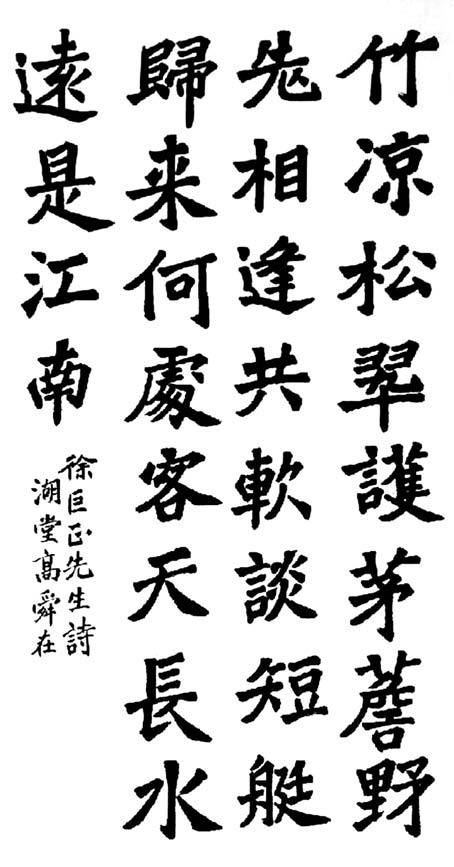 竹凉松翠護茅薝野
老相逢共軟談短艇
歸来何處客天長水
遠是江南
徐巨正先生詩
湖堂高舜在